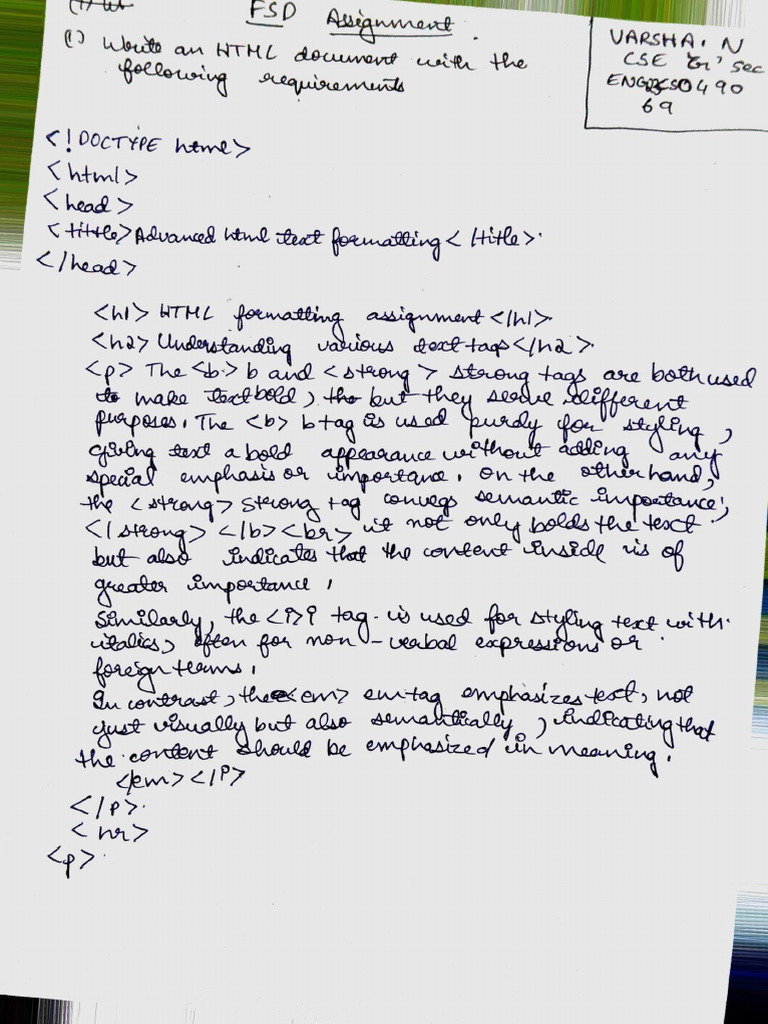 FSD Assignment.
(1) Write an HTML document with the
following requirements
VARSHA. N
CSE 'G' sec
69
<!DOCTYPE html>
<html>
<head>
<title>Advanced html text formatting</title>.
</head>
<h1> HTML formatting assignment </h1>.
<h2> Understanding various text tags </h2>.
<p> The <b> b and <strong> strong tags are both used
to make text bold, but they serve different
purposes. The <b> b tag is used purely for styling,
giving text a bold appearance without adding any
special emphasis or importance. On the other hand,
the <strong> strong tag conveys semantic importance,
</strong> </b> <br> it not only bolds the text
but also indicates that the content inside is of
greater importance.
Similarly, the <i> i tag is used for styling text with
italics, often for non-verbal expressions or
foreign terms.
In contrast, the <em> em tag emphasizes text, not
just visually but also semantically, indicating that
the content should be emphasized in meaning.
</em> </p>
</p>.
<hr>
<p>.